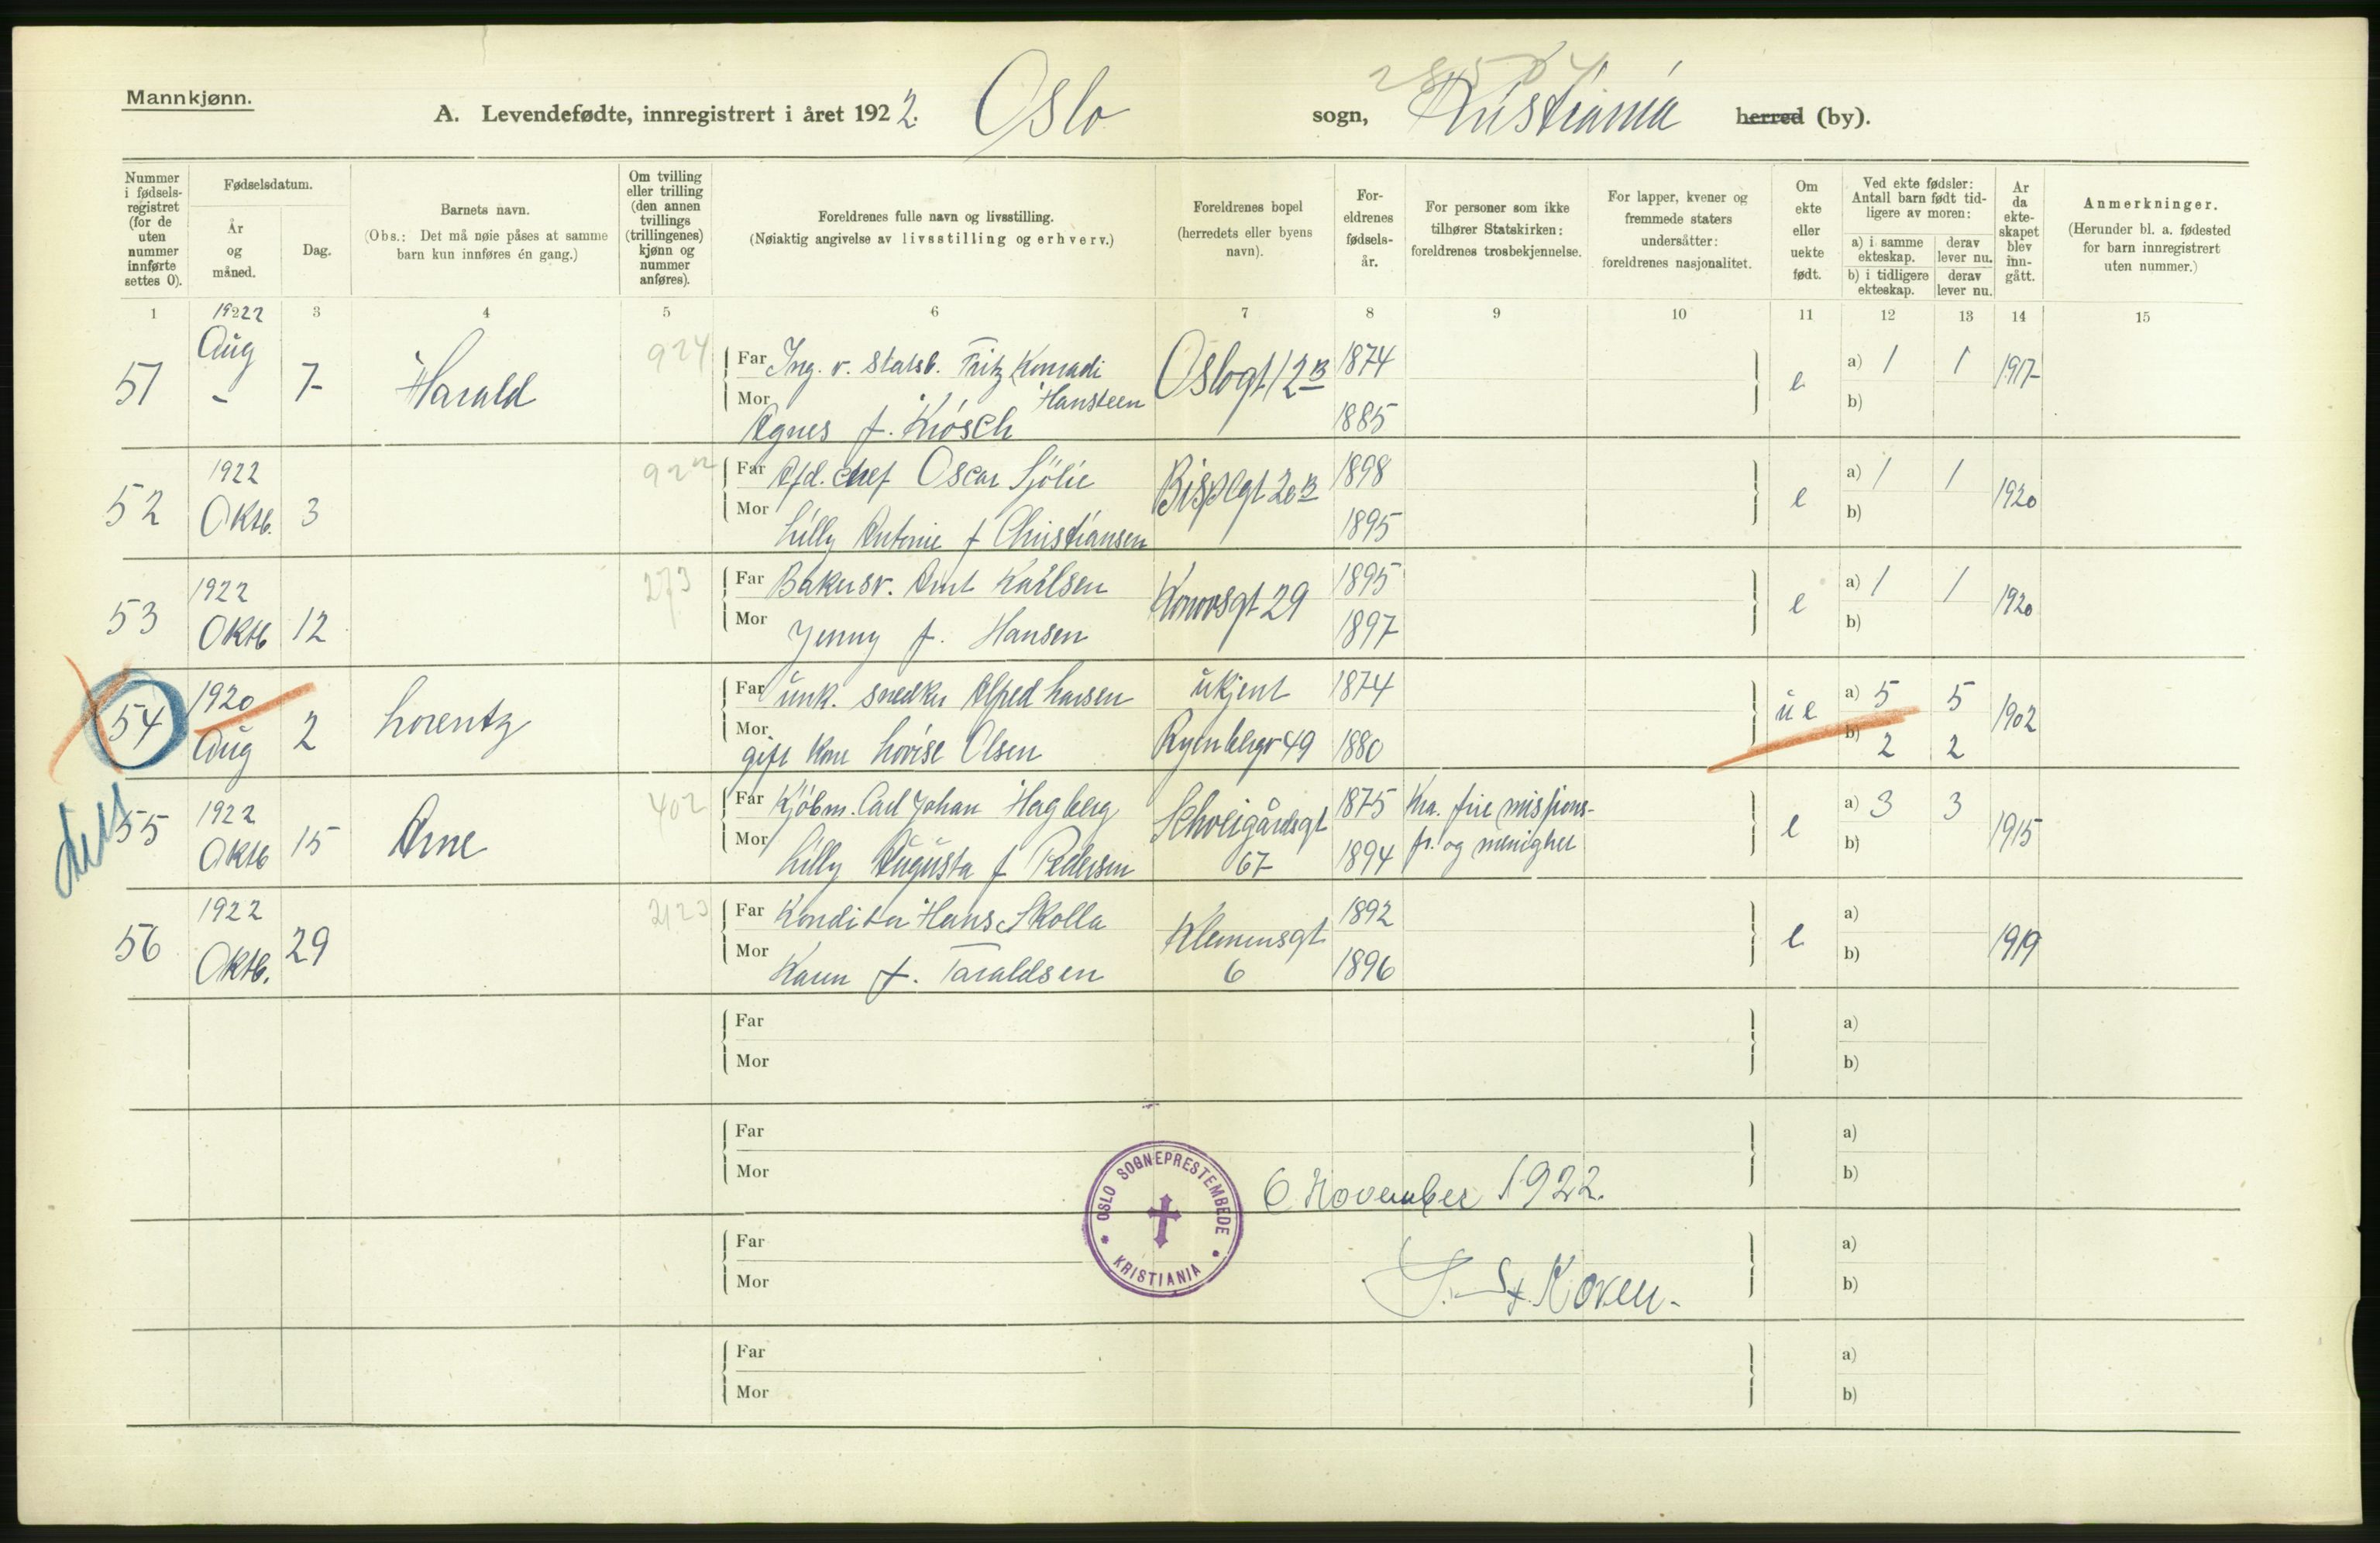 Mannkjønn.
A. Levendefødte, innregistrert i året 1922. Oslo sogn, Kristiania herred (by).
Nummer i fødsels-registret (for de uten nummer innførte settes 0).
Fødselsdatum.
År og måned.
Dag.
Barnets navn.
(Obs.: Det må nøie påses at samme barn kun innføres én gang.)
Om tvilling eller trilling (den annen tvillings (trillingenes) kjønn og nummer anføres).
Foreldrenes fulle navn og livsstilling.
(Nøiaktig angivelse av livsstilling og erhverv.)
Foreldrenes bopel (herredets eller byens navn).
For-eldrenes fødsels-år.
For personer som ikke tilhører Statskirken: foreldrenes trosbekjennelse.
For lapper, kvener og fremmede staters undersåtter: foreldrenes nasjonalitet.
Om ekte eller uekte født.
Ved ekte fødsler: Antall barn født tid-ligere av moren:
a) i samme ekteskap. derav lever nu.
b) i tidligere ekteskap. derav lever nu.
År da ekte-skapet blev inn-gått.
Anmerkninger.
(Herunder bl. a. fødested for barn innregistrert uten nummer.)
1 3 4 5 6 7 8 9 10 11 12 13 14 15
51 1922 Aug 7 Harald 924 Far Ing. v. Statsb. Fritz Konradi Hansteen Oslogt 12B 1874 e a) 1 1 1917
Mor Agnes f. Kiøsch 1885 b)
52 1922 Oktb. 3 922 Far Afd. chef Oscar Sjölie Bispegt 20B 1898 e a) 1 1 1920
Mor Lilly Antonie f Christiansen 1895 b)
53 1922 Oktb 12 273 Far Bakersv. Arnt Karlsen Konowsgt 29 1895 e a) 1 1 1920
Mor Jenny f. Hansen 1897 b)
54 1920 Aug 2 Lorentz Far unk. snedker Alfred Larsen ukjent 1874 ue a) 5 5 1902
Mor gift kone Lovise Olsen Ryenbergv 49 1880 b) 2 2
55 1922 Oktb 15 Arne 402 Far Kjöbm. Carl Johan Hagberg Schweigårdsgt 67 1875 Kra. frie missions- e a) 3 3 1915
Mor Lilly Augusta f Pedersen 1894 fr. og menighet b)
56 1922 Oktb. 29 2123 Far Konditor Hans Skolla Klemensgt 6 1892 e a) 1919
Mor Karen f. Taraldsen 1896 b)
Far a)
Mor b)
Far a)
Mor b)
OSLO SOGNEPRESTEMBEDE
KRISTIANIA
6 November 1922.
Far a)
Mor b)
Koren.
Far a)
Mor b)